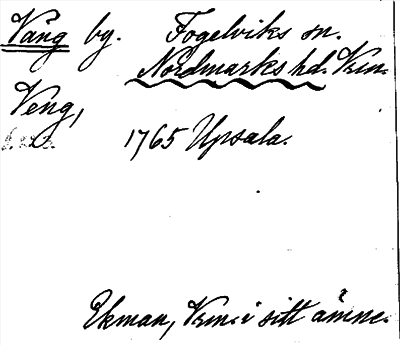 Väng by. Fogelviks sn.
Nordmarks hd. Vrm.
Veng,
1765 Upsala.
Ekman, Vrm. i sitt ämne.